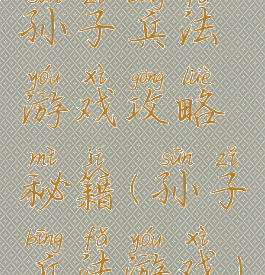 sūn zǐ bīng fǎ
孙子兵法
yóu xì gōng lüè
游戏攻略
mì jí sūn zǐ
秘籍(孙子
bīng fǎ yóu xì
兵法游戏)